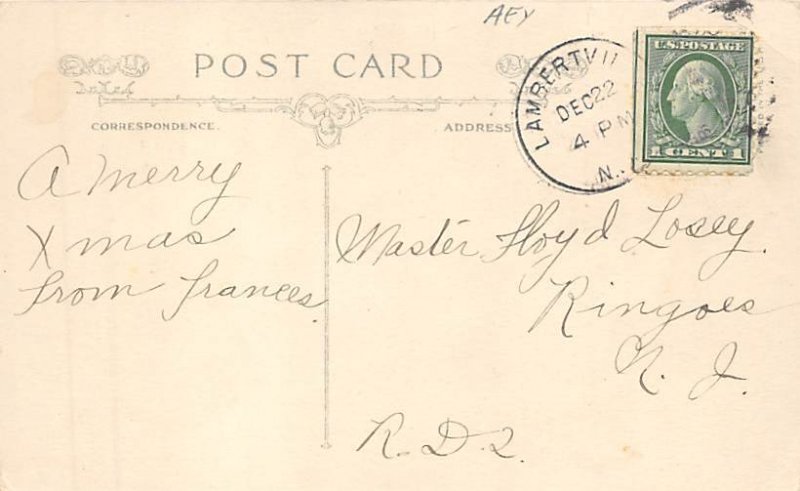 AEY
POST CARD
CORRESPONDENCE.
ADDRESS
LAMBERTVIL
DEC 22
4 PM
N.
U.S. POSTAGE
1 CENT 1
A Merry
Xmas
from Frances.
Master Floyd Losey.
Ringoes
N. J.
R. D. 2.